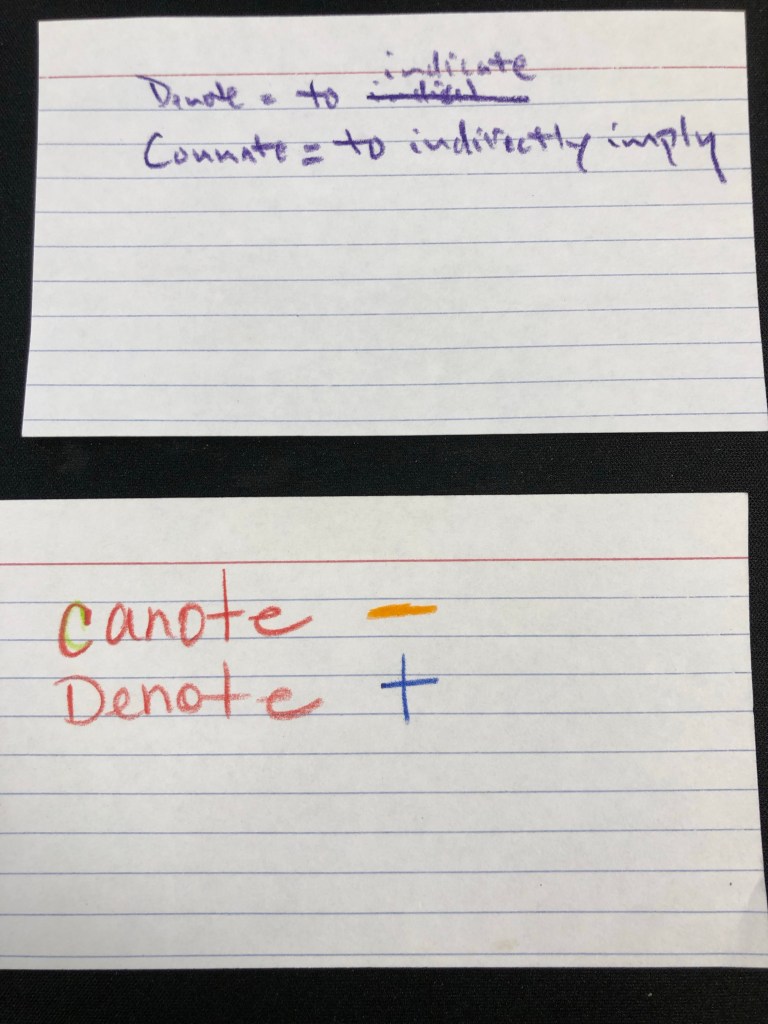 indicate
Denote = to
Connote = to indirectly imply
canote −
Denote +